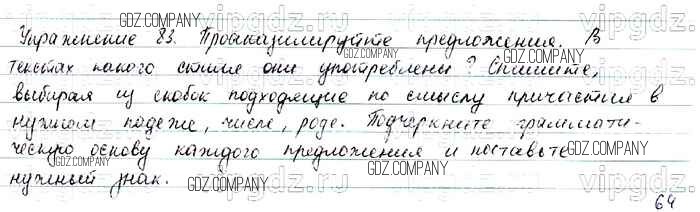 Упражнение 83. Проанализируйте предложения. В
текстах какого стиля они употреблены? Спишите,
выбирая из скобок подходящие по смыслу причастия в
нужном падеже, числе, роде. Подчеркните граммати-
ческую основу каждого предложения и поставьте
нужный знак.
64
GDZ.COMPANY
GDZ.COMPANY
GDZ.COMPANY
GDZ.COMPANY
GDZ.COMPANY
GDZ.COMPANY
GDZ.COMPANY
GDZ.COMPANY
vipgdz.ru
vipgdz.ru
vipgdz.ru